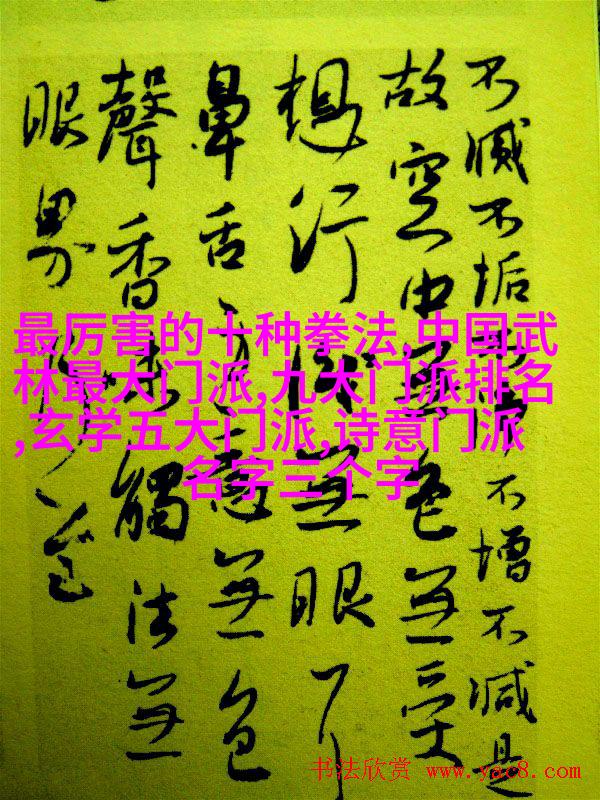 不滅不垢不增不減是
故空中無色無受
想行識無眼耳
鼻舌身意無色
聲香味觸法無
眼界
最厉害的十种拳法,中国武
林最大门派,九大门派排名
,玄学五大门派,诗意门派
名字三个字
书法欣赏 www.yac8.com